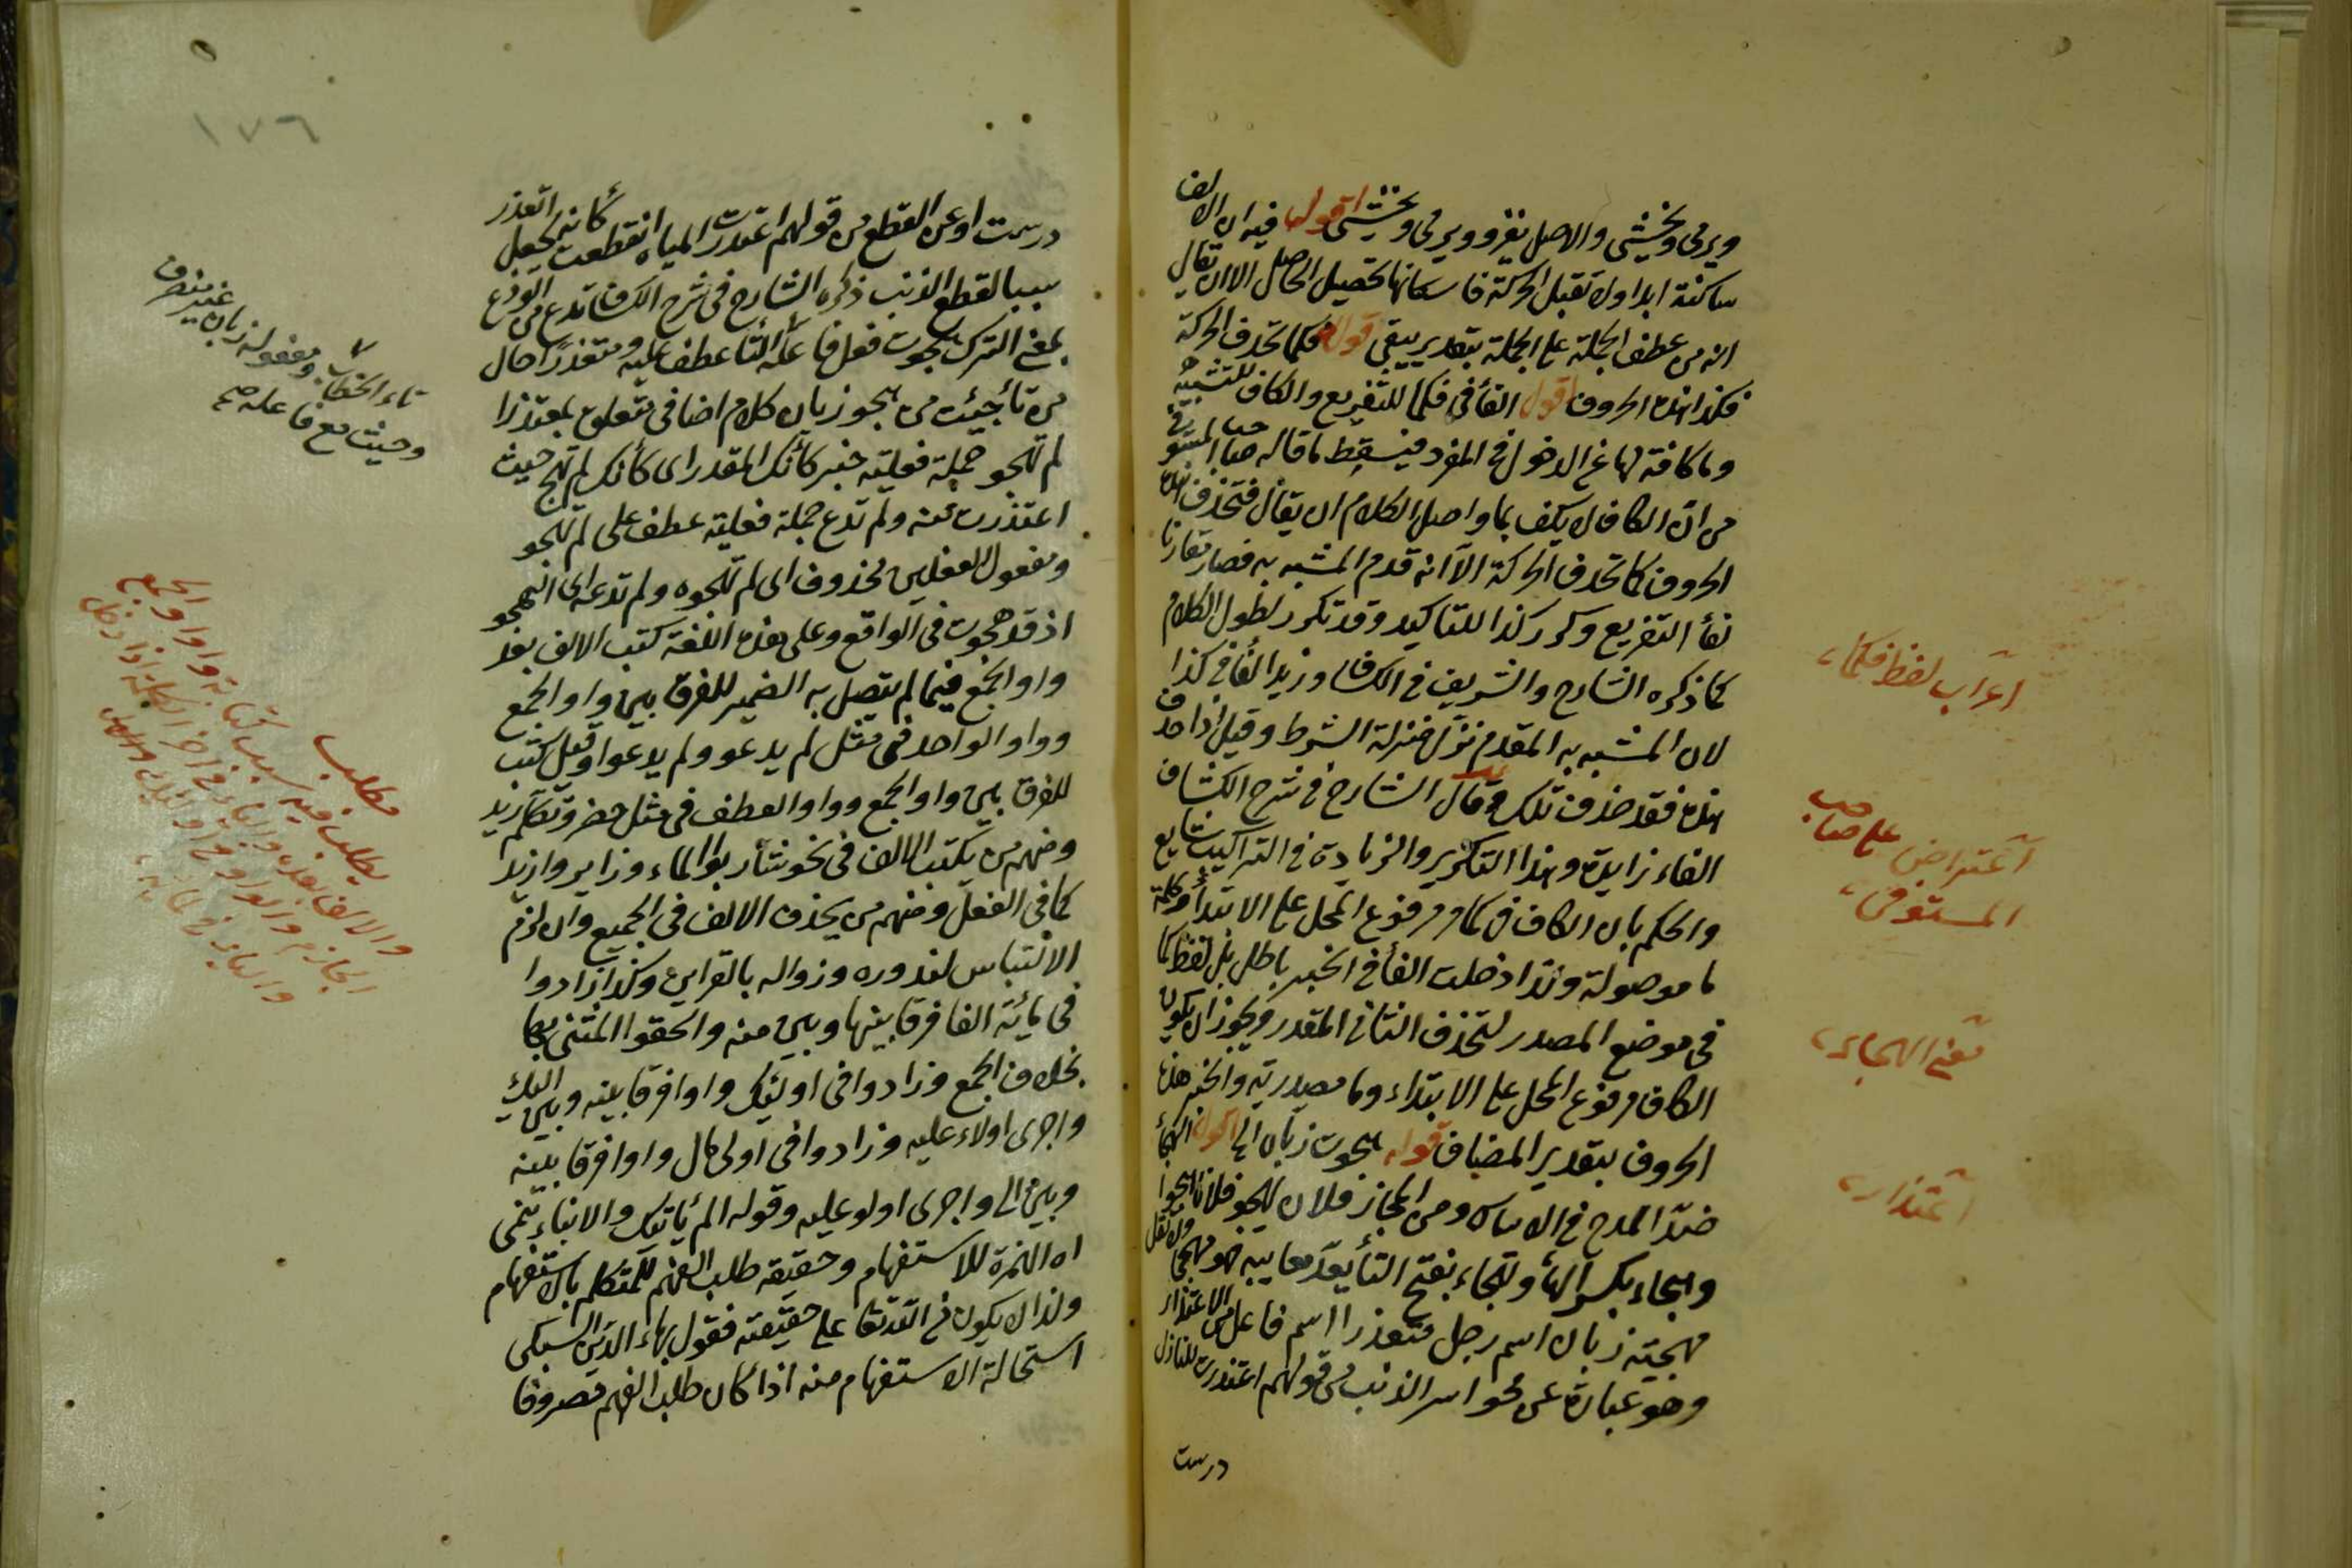 ويرمى ويخشى والاصل يغزو ويرمى ويخشى اقول فيه ان الالف
ساكنة ابدا ولا تقبل الحركة فاسكانها تحصيل الحاصل الا ان يقال
انه من عطف الجملة على الجملة بتقدير يبقى قوله فكما تحذف الحركة
فكذا هذه الحروف اقول الفأ فى فكما للتفريع والكاف للتشبيه
وما كافة لها عن الدخول فى المفرد فيسقط ما قاله صاحب المستوفى
من ان الكاف لا يكف بما واصل الكلام ان يقال فتحذف هذه
الحروف كما تحذف الحركة الا انه قدم المشبه به فصار مقارنا
لفأ التفريع وكرر كذا للتاكيد وقد تكرر لطول الكلام
كما ذكره الشارح والشريف فى الكشاف وزيد الفأ فى كذا
لان المشبه به المقدم نزل منزلة الشرط وقيل اذا حذف
هذه فقد حذف تلك وقال الشارح فى شرح الكشاف
الفاء زايدة وهذا التكرير والزيادة فى التراكيب شايع
والحكم بان الكاف فى كما مرفوع المحل على الابتدأ وكلمة
ما موصولة ولذا دخلت الفأ فى الخبر باطل بل لفظ كما
فى موضع المصدر لتحذف الثانى المقدر ويجوز ان يكون
الكاف مرفوع المحل على الابتداء وما مصدرية والخبر هذه
الحروف بتقدير المضاف قوله هجوت زبان الخ اقول الهجأ
ضد المدح فى الاساس ومن المجاز فلان يهجو فلانا هجوا
وهجاء بكسر الهأ وتهجاء بفتح التأ يعد معايبه فهو مهجو ولا تقل
مهجيته زبان اسم رجل معتذرا اسم فاعل من الاعتذار
وهو عبارة عن محو اسر الذنب من قولهم اعتذرت المنازل
درست
اعراب لفظ فكما
اعتراض على صاحب
المستوفى
معنى الهجاء
اعتذار
١٧٦
درست او عن القطع من قولهم اعتذرت المياه انقطعت كانه يجعل العذر
سببا لقطع الذنب ذكره الشارح فى شرح الكشاف تدع من الودع
بمعنى الترك هجوت فعل فاعله التأ عطف عليه ومعتذرا حال
من تأ جئت من هجو زبان كلام اضافى متعلق بمعتذرا
لم تهجو جملة فعلية خبر كأنك المقدر اى كأنك لم تهج حيث
اعتذرت عنه ولم تدع جملة فعلية عطف على لم تهجو
ومفعول الفعلين محذوف اى لم تهجوه ولم تدعه اى الهجو
اذ قد هجوت فى الواقع وعلى هذه اللغة كتب الالف بعد
واو الجمع فيما لم يتصل به الضمير للفرق بين واو الجمع
وواو الواحد فى مثل لم يدعو ولم يدعوا وقيل كتب
للفرق بين واو الجمع وواو العطف فى مثل حضر وتكلم زيد
ومنهم من يكتب الالف فى نحو شاربوا الماء وزايروا زيد
كما فى الفعل ومنهم من يحذف الالف فى الجميع وان لزم
الالتباس لندوره وزواله بالقراين وكذا زادوا
فى مائة الفا فرقا بينها وبين منه والحقوا المثنى بها
بخلاف الجمع وزادوا فى اولئك واوا فرقا بينه وبين اليك
واجرى اولاء عليه وزادوا فى اولى مال واوا فرقا بينه
وبين الى واجرى اولو عليه وقوله الم يأتيك والانباء تنمى
اه الهمزة للاستفهام وحقيقة طلب الفهم للمتكلم بالاستفهام
ولذا لا يكون فى الله تعالى على حقيقته فقول بهاء الدين السبكى
استحالة الاستفهام منه اذا كان طلب الفهم مصروفا
تاء الخطاب ومفعوله زبان غير منصرف
وحيث مع فاعله صح
مطلب
يطلب فيه سبب كتابة واو الجمع
والالف بعده
الجازم